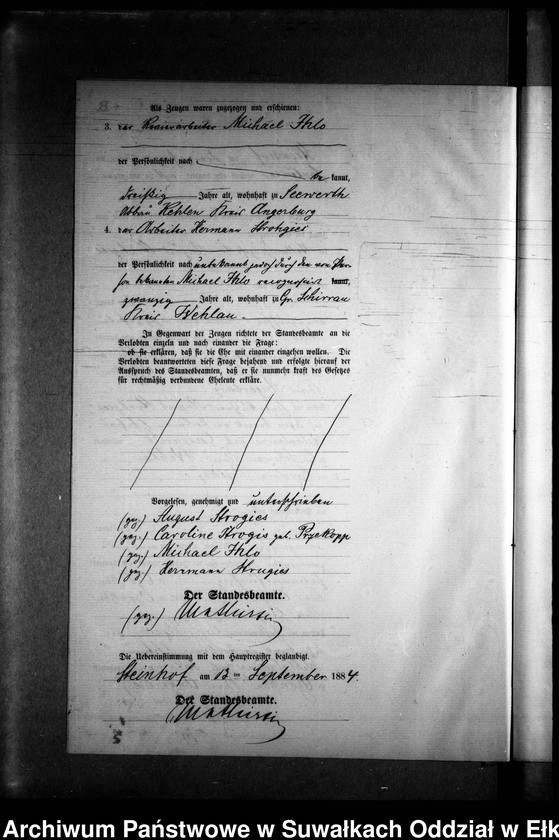 Als Zeugen waren zugezogen und erschienen:
3. der Michael Ihlo
der Persönlichkeit nach
be kannt,
dreißig Jahre alt, wohnhaft zu Seewerth
Abbau Kehlen Kreis Angerburg
4. der Arbeiter Hermann Strohgies
der Persönlichkeit nach unbekannt jedoch durch den von Per-
son bekannten Michael Ihlo recognoscirt kannt,
zwanzig Jahre alt, wohnhaft zu Gr. Schirrau
Kreis Wehlau.
In Gegenwart der Zeugen richtete der Standesbeamte an die
Verlobten einzeln und nach einander die Frage:
ob sie erklären, daß sie die Ehe mit einander eingehen wollen. Die
Verlobten beantworteten diese Frage bejahend und erfolgte hierauf der
Ausspruch des Standesbeamten, daß er sie nunmehr kraft des Gesetzes
für rechtmäßig verbundene Eheleute erkläre.
Vorgelesen, genehmigt und unterschrieben
(gez.) August Strogies
(gez.) Caroline Strogis geb. Przekopp
(gez.) Michael Ihlo
(gez.) Herrmann Strugies
Der Standesbeamte.
(gez.)
Die Uebereinstimmung mit dem Hauptregister beglaubigt.
Steinhof am 13 ten September 1884.
Der Standesbeamte.
Archiwum Państwowe w Suwałkach Oddział w Ełk